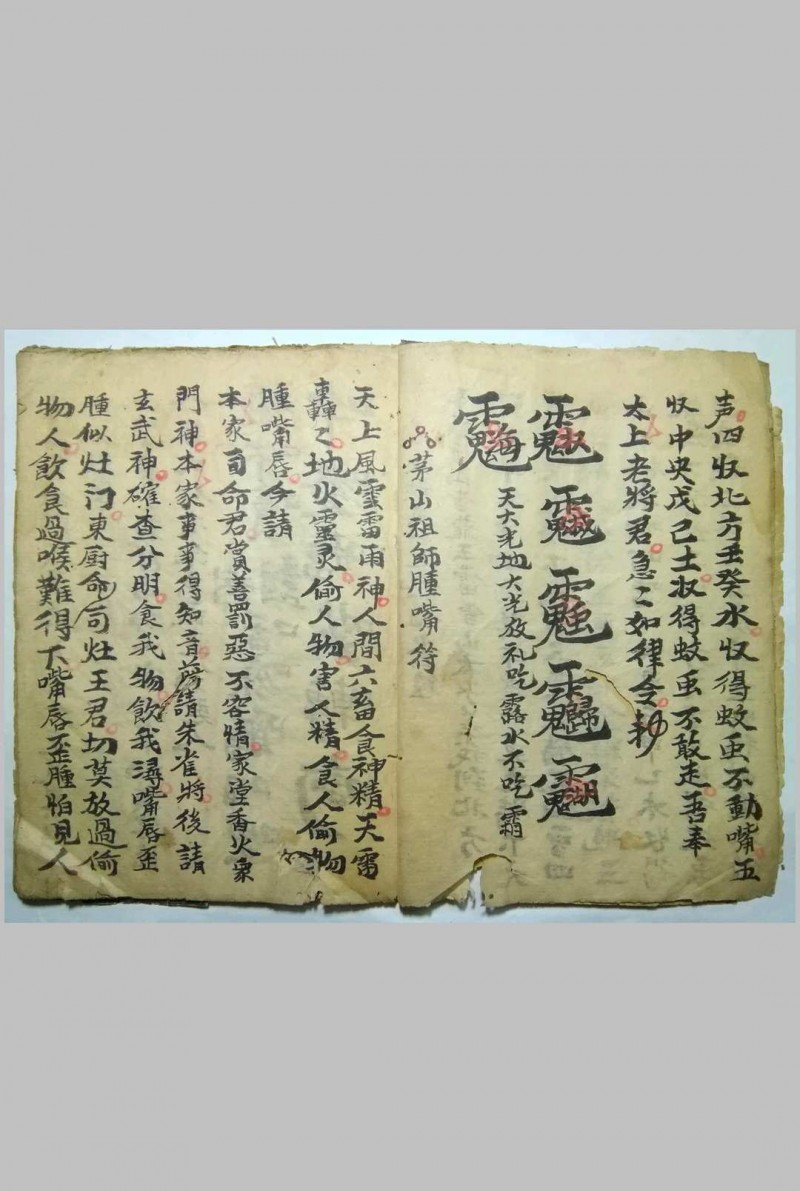 声四収北方壬癸水収得蚊虫不動嘴五
収中央戊己土収得蚊虫不敢走吾奉
太上老將君急〻如律令
天大光地大光放礼吃露水不吃霜
茅山祖師腫嘴符
天上風雲雷雨神人間六畜食神精天雷
轟〻地火靈灵偷人物害人精食人偷物
腫嘴唇今請
本家司命君賞善罰惡不容情家堂香火衆
門神本家事事得知音請朱雀將後請
玄武神確查分明食我物飲我潯嘴唇歪
腫似灶门東厨命司灶王君切莫放過偷
物人飲食過喉難得下嘴唇歪腫怕見人